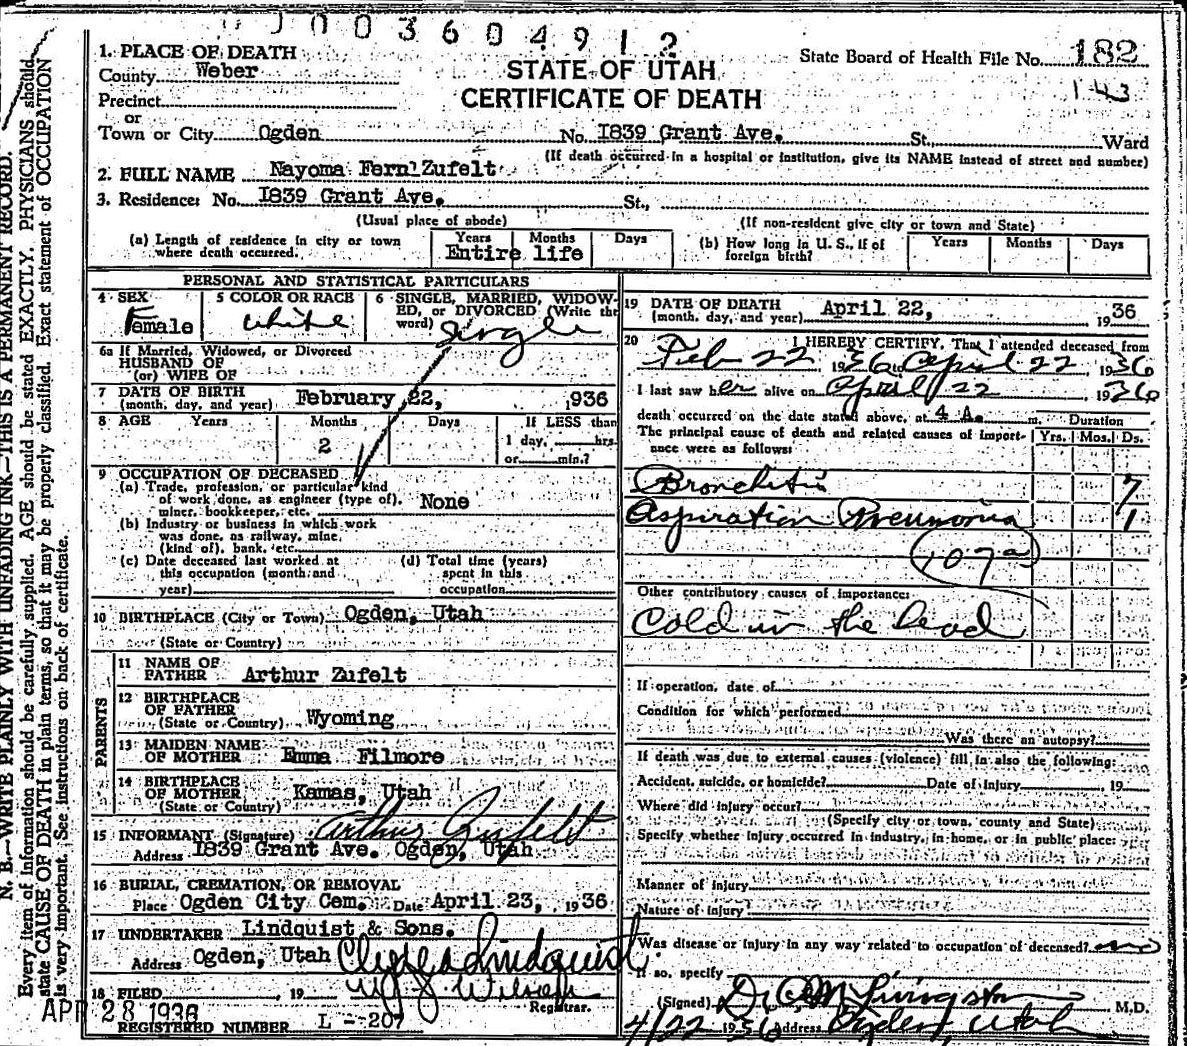 003604912
1. PLACE OF DEATH
County Weber
STATE OF UTAH
State Board of Health File No. 182
Precinct
CERTIFICATE OF DEATH
143
or
Town or City Ogden No. 1839 Grant Ave. St. Ward
(If death occurred in a hospital or institution, give its NAME instead of street and number)
2. FULL NAME Nayoma Fern Zufelt
3. Residence: No. 1839 Grant Ave. St.,
(Usual place of abode) (If non-resident give city or town and State)
(a) Length of residence in city or town where death occurred. Years Months Days
Entire life
(b) How long in U. S., if of foreign birth? Years Months Days
PERSONAL AND STATISTICAL PARTICULARS
4 SEX Female
5 COLOR OR RACE white
6 SINGLE, MARRIED, WIDOW-
ED, or DIVORCED (Write the
word) single
6a If Married, Widowed, or Divorced
HUSBAND OF
(or) WIFE OF
7 DATE OF BIRTH
(month, day, and year) February 22, 1936
8 AGE Years Months Days If LESS than
2 1 day, hrs.
or min.?
9 OCCUPATION OF DECEASED
(a) Trade, profession, or particular kind
of work done, as engineer (type of), None
miner, bookkeeper, etc.
(b) Industry or business in which work
was done, as railway, mine,
(kind of), bank, etc.
(c) Date deceased last worked at
this occupation (month and
year)
(d) Total time (years)
spent in this
occupation
10 BIRTHPLACE (City or Town) Ogden, Utah
(State or Country)
PARENTS
11 NAME OF
FATHER Arthur Zufelt
12 BIRTHPLACE
OF FATHER
(State or Country) Wyoming
13 MAIDEN NAME
OF MOTHER Emma Filmore
14 BIRTHPLACE
OF MOTHER Kamas, Utah
(State or Country)
15 INFORMANT (Signature) Arthur Zufelt
Address 1839 Grant Ave. Ogden, Utah
16 BURIAL, CREMATION, OR REMOVAL
Place Ogden City Cem. Date April 23, 1936
17 UNDERTAKER Lindquist & Sons.
Address Ogden, Utah Clyde Lindquist
18 FILED , 19 Registrar.
APR 28 1936
REGISTERED NUMBER L - 207
19 DATE OF DEATH
(month, day, and year) April 22, 1936
20 I HEREBY CERTIFY, That I attended deceased from
Feb 22, 1936 to April 22, 1936
I last saw her alive on April 22, 1936
death occurred on the date stated above, at 4 A. m. Duration
The principal cause of death and related causes of import-
ance were as follows: Yrs. Mos. Ds.
Bronchitis 7
Aspiration Pneumonia 1
107a
Other contributory causes of importance:
Cold in the head
If operation, date of
Condition for which performed
Was there an autopsy?
If death was due to external causes (violence) fill in also the following:
Accident, suicide, or homicide? Date of Injury , 19
Where did injury occur?
(Specify city or town, county and State)
Specify whether injury occurred in industry, in home, or in public place:
Manner of injury
Nature of injury
Was disease or injury in any way related to occupation of deceased? no
If so, specify
(Signed) Livingston M.D.
4/22 1936 Address Ogden, Utah
N. B.—WRITE PLAINLY WITH UNFADING INK—THIS IS A PERMANENT RECORD.
Every item of information should be carefully supplied. AGE should be stated EXACTLY. PHYSICIANS should
state CAUSE OF DEATH in plain terms, so that it may be properly classified. Exact statement of OCCUPATION
is very important. See instructions on back of certificate.